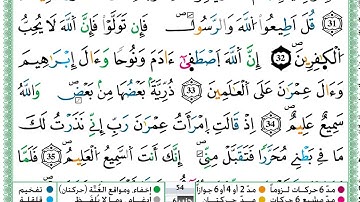 ٣١ قُلْ أَطِيعُوا۟ ٱللَّهَ وَٱلرَّسُولَ ۖ فَإِن تَوَلَّوْا۟ فَإِنَّ ٱللَّهَ لَا يُحِبُّ
ٱلْكَٰفِرِينَ ٣٢ إِنَّ ٱللَّهَ ٱصْطَفَىٰٓ ءَادَمَ وَنُوحًا وَءَالَ إِبْرَٰهِيمَ
وَءَالَ عِمْرَٰنَ عَلَى ٱلْعَٰلَمِينَ ٣٣ ذُرِّيَّةًۢ بَعْضُهَا مِنۢ بَعْضٍ ۗ وَٱللَّهُ
سَمِيعٌ عَلِيمٌ ٣٤ إِذْ قَالَتِ ٱمْرَأَتُ عِمْرَٰنَ رَبِّ إِنِّى نَذَرْتُ لَكَ
مَا فِى بَطْنِى مُحَرَّرًا فَتَقَبَّلْ مِنِّىٓ ۖ إِنَّكَ أَنتَ ٱلسَّمِيعُ ٱلْعَلِيمُ ٣٥ فَلَمَّا
54
مدّ ٦ حركات لزوماً مدّ ٢ أو ٤ أو ٦ جوازاً إخفاء، ومواقع الغُنَّة (حركتان) تفخيم
مدّ حركتان إدغام، وما لا يُلفَظ قلقلة